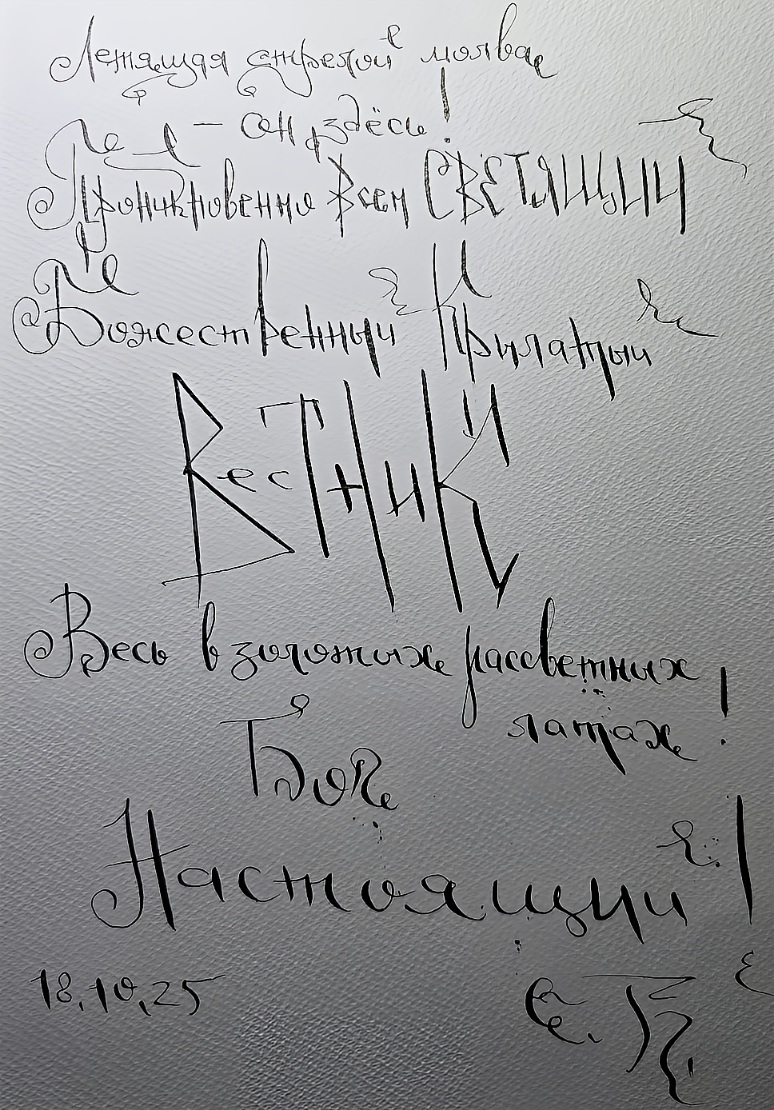 Летящая стрелой молва
– он здесь!
Проникновенно Всем СВЕТЯЩИЙ
Божественный Крылатый
ВестниК
Весь в золотых рассветных
латах!
Бог
Настоящий!
18.10.25